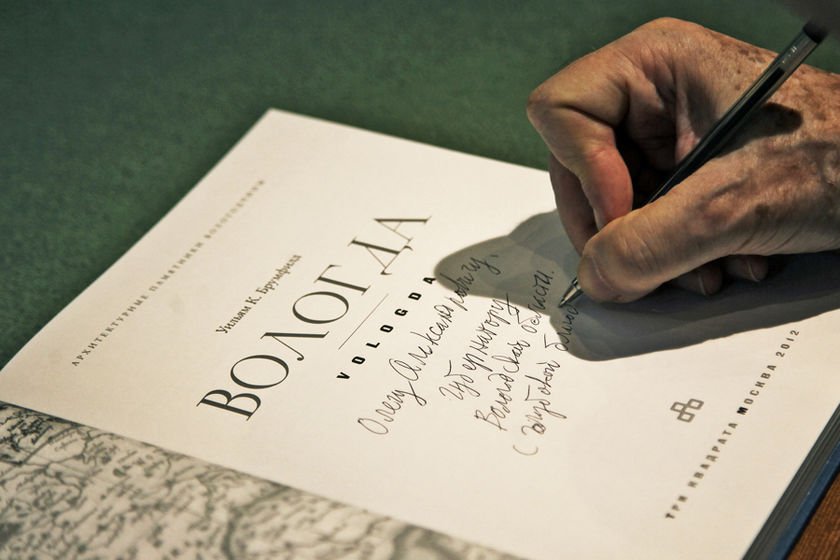 АРХИТЕКТУРНЫЕ ПАМЯТНИКИ ВОЛОГОДЧИНЫ
Уильям К. Брумфилд
ВОЛОГДА
VOLOGDA
Олегу Александровичу,
губернатору
Вологодской области.
С глубокой благо
ТРИ КВАДРАТА МОСКВА 2012